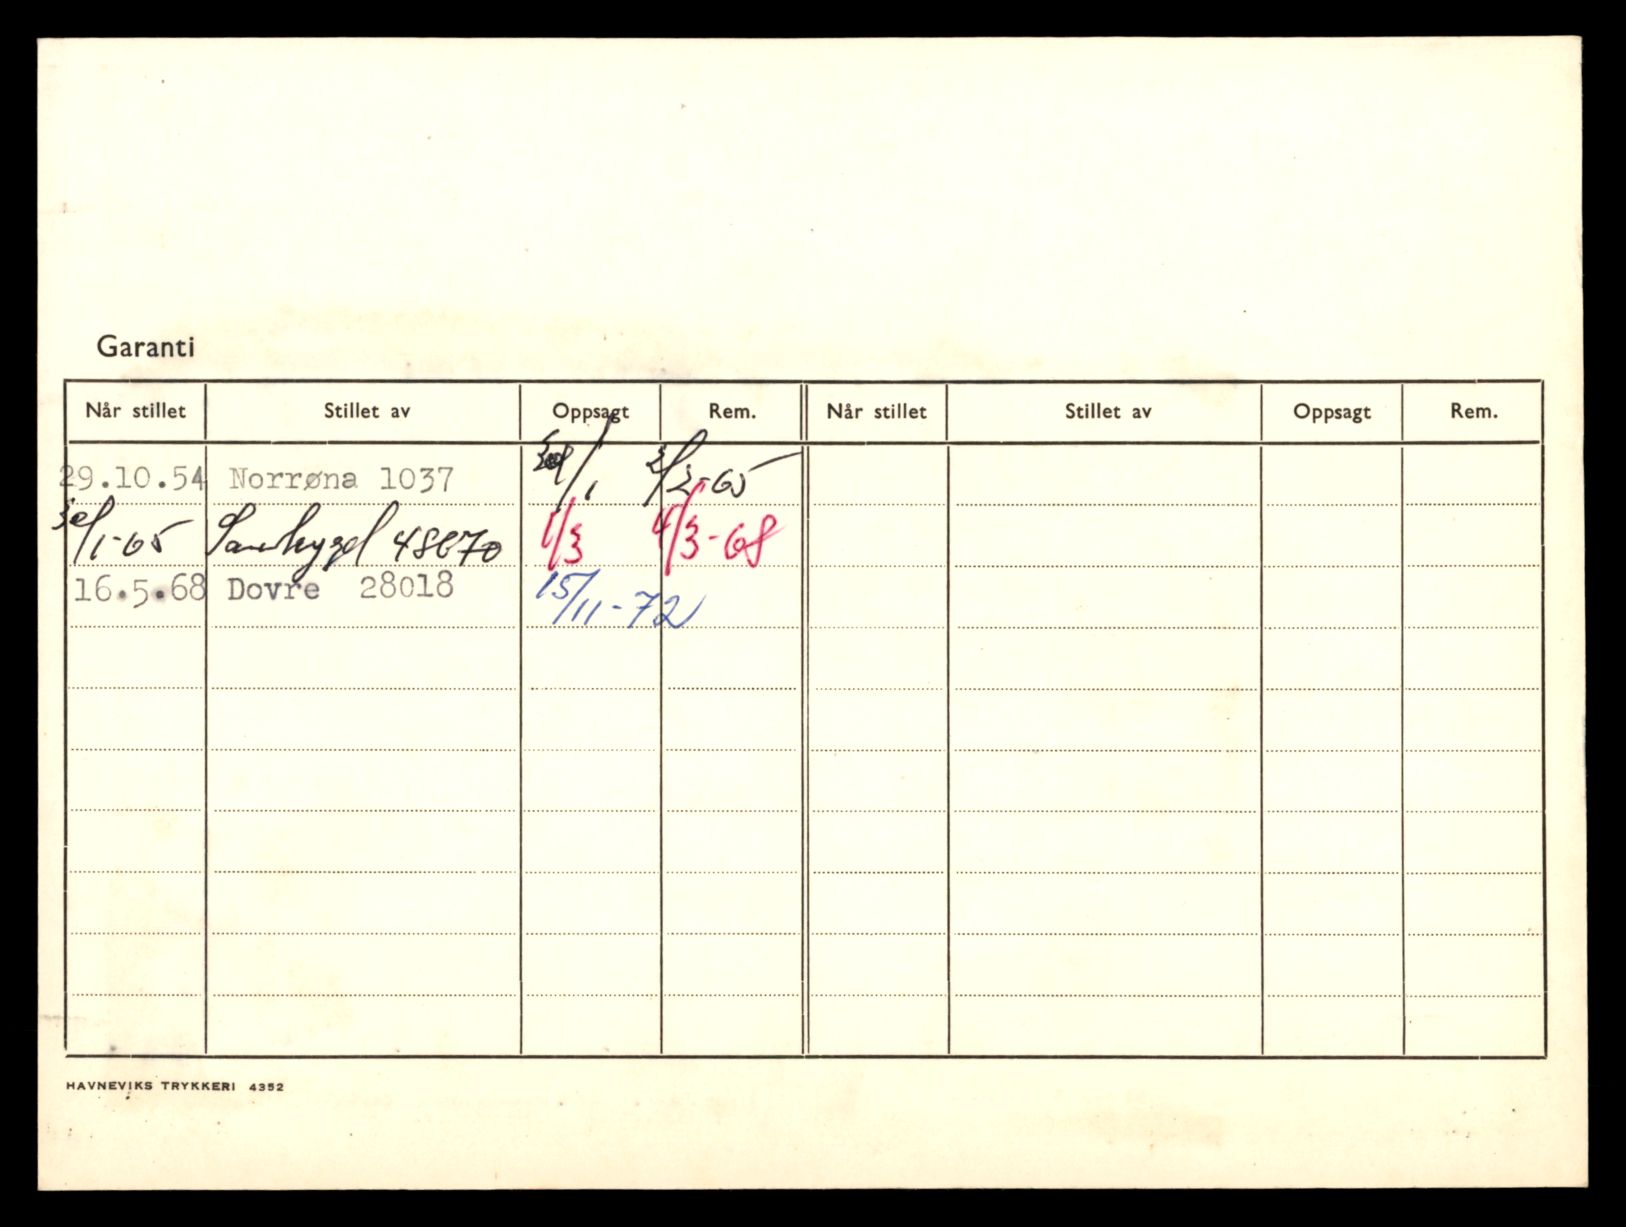 Garanti
Når stillet Stillet av Oppsagt Rem. Når stillet Stillet av Oppsagt Rem.
29.10.54 Norrøna 1037 30/1 2/2-65
30/1-65 Samtrygd 48870 1/3 4/3-68
16.5.68 Dovre 28018 15/11-72
HAVNEVIKS TRYKKERI 4352